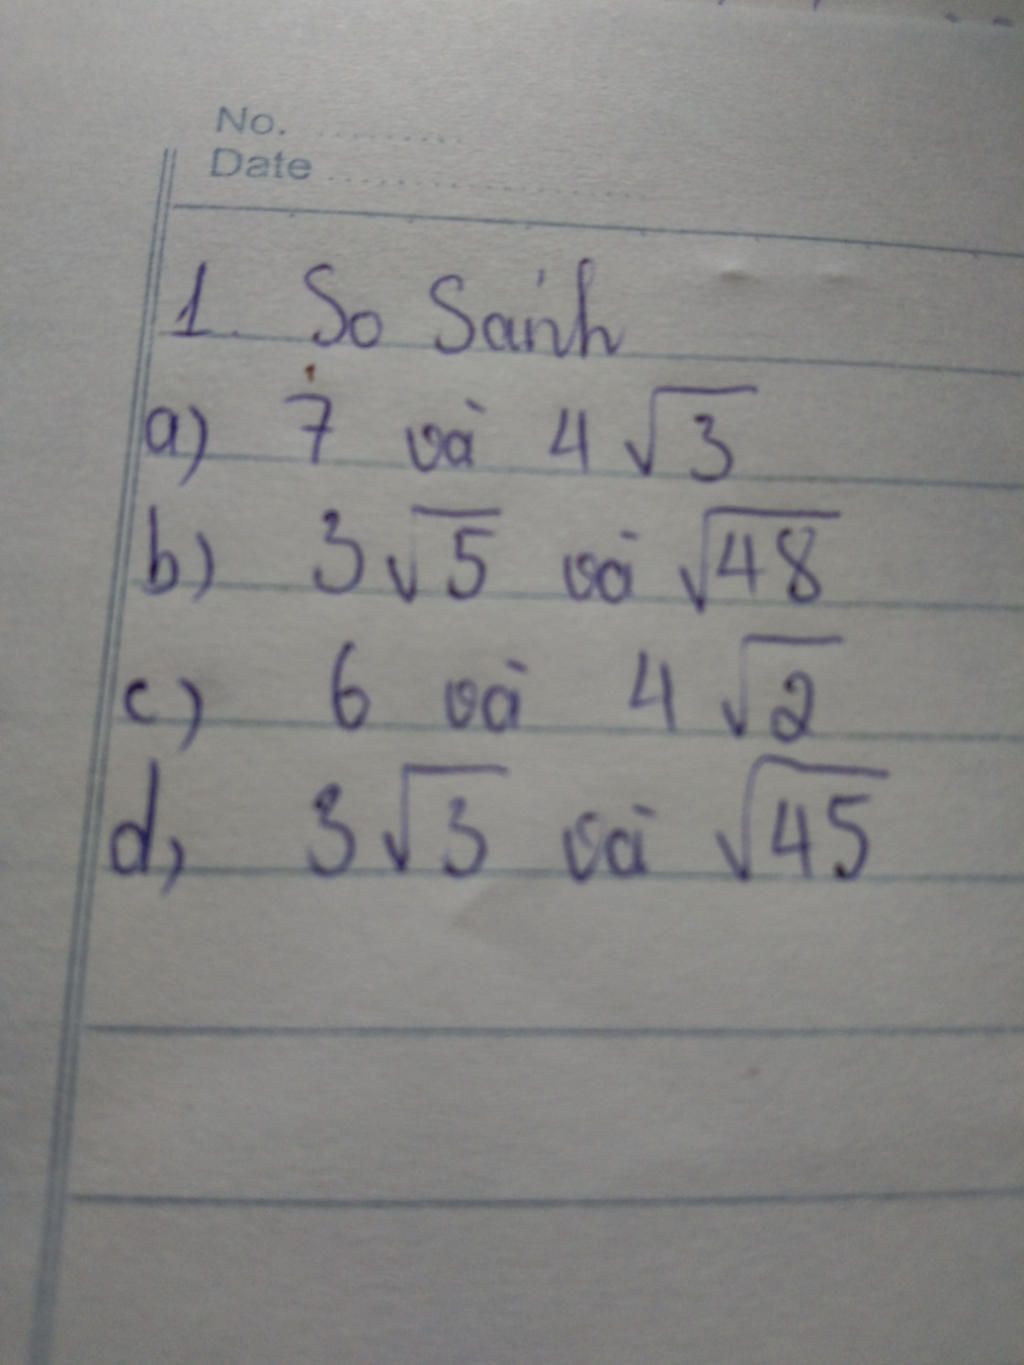 No. ..........
Date ......................
1. So Sánh
a) 7 và 4√3
b) 3√5 và √48
c) 6 và 4√2
d, 3√3 và √45